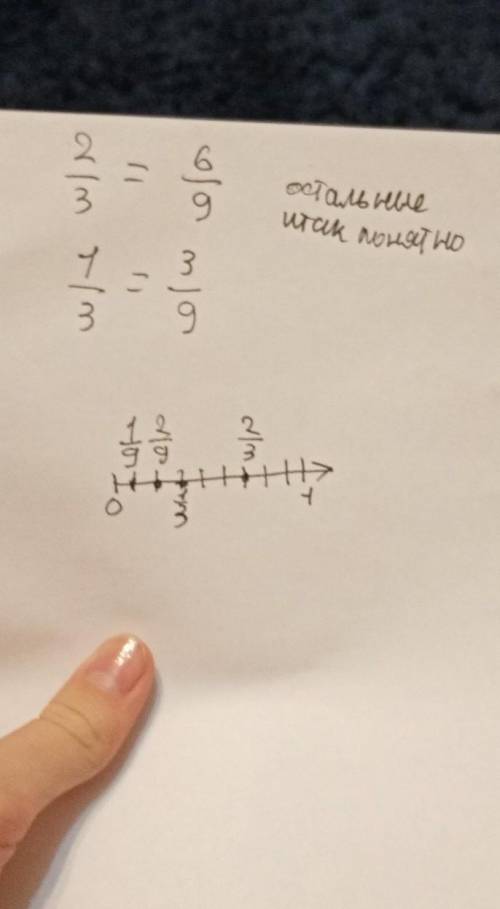 2/3 = 6/9
остальные
итак понятно
1/3 = 3/9
1/9 2/9 2/3
0 1/3 1